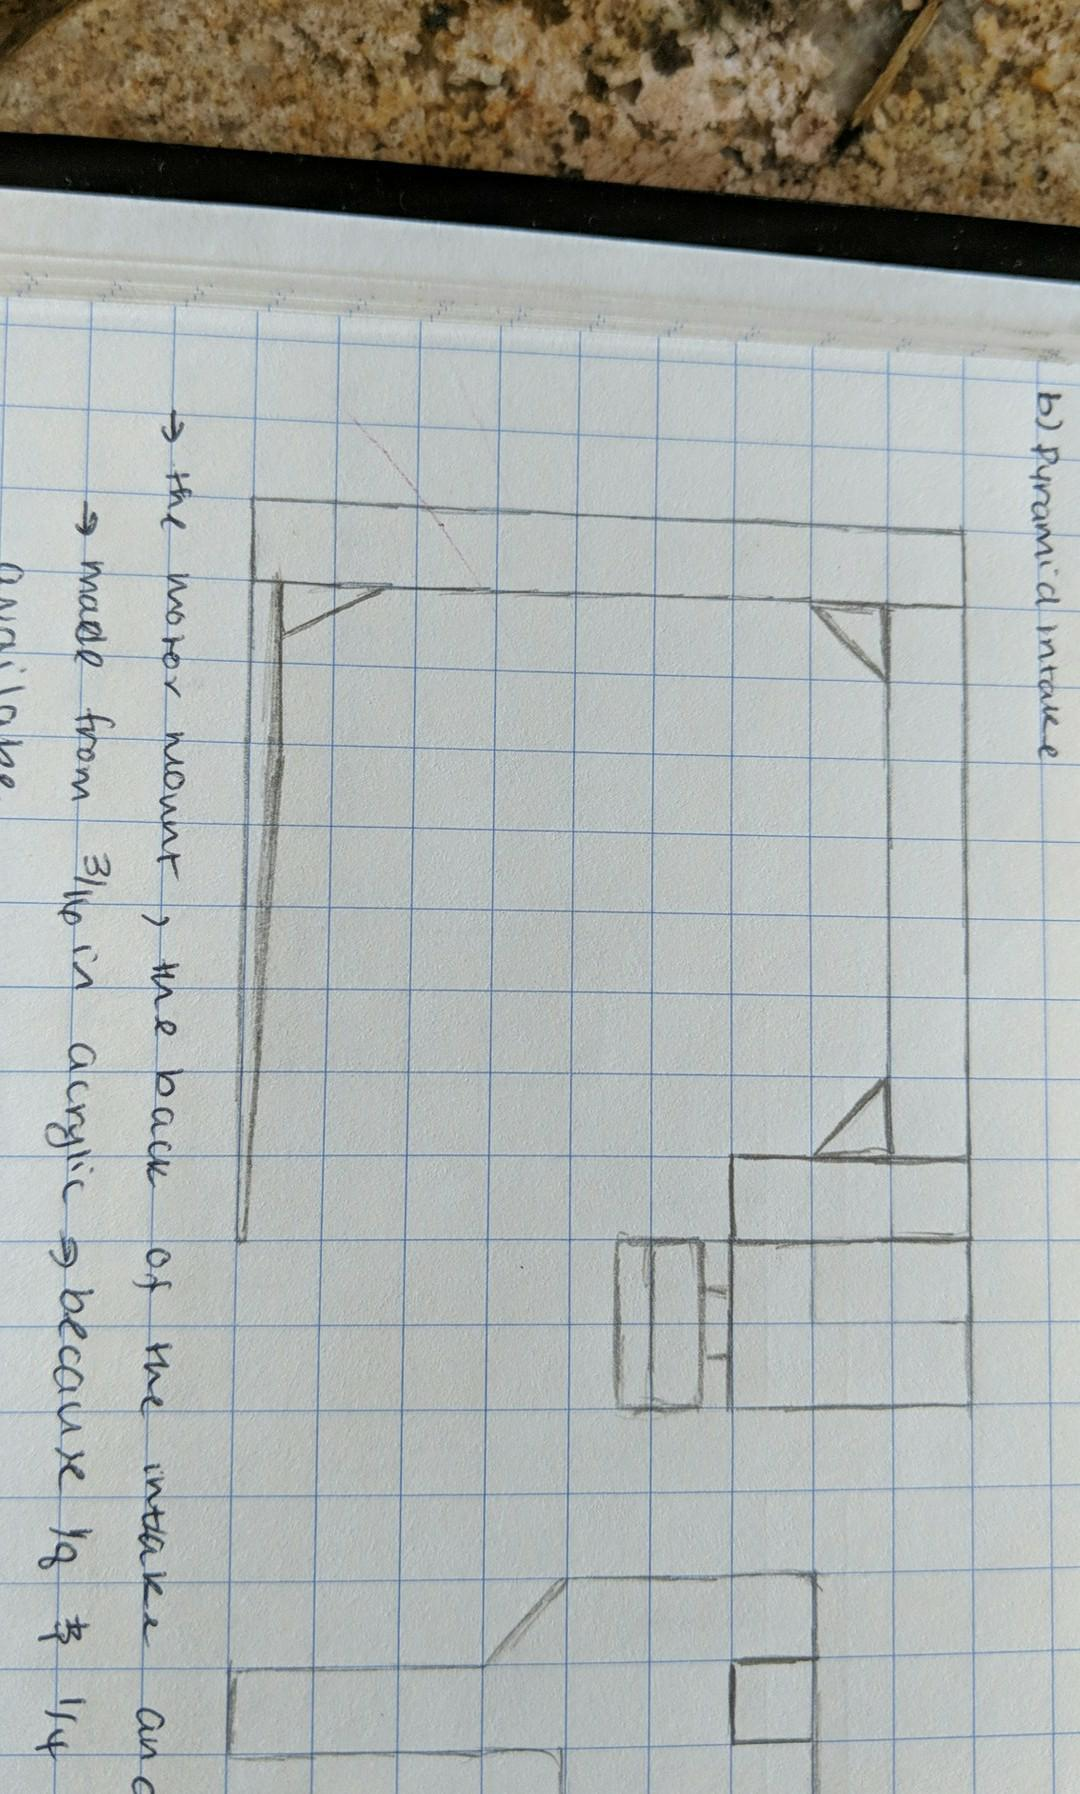 b) Pyramid intake
→ the motor mount, the back of the intake and
→ made from 3/16 in acrylic → because 1/8 # 1/4
availabe